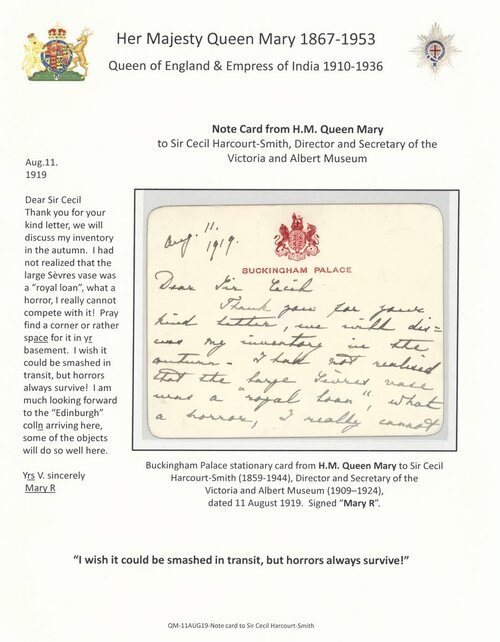 Her Majesty Queen Mary 1867-1953
Queen of England & Empress of India 1910-1936
Note Card from H.M. Queen Mary
to Sir Cecil Harcourt-Smith, Director and Secretary of the
Victoria and Albert Museum
Aug.11.
1919
Dear Sir Cecil
Thank you for your
kind letter, we will
discuss my inventory
in the autumn. I had
not realized that the
large Sèvres vase was
a “royal loan”, what a
horror, I really cannot
compete with it! Pray
find a corner or rather
space for it in yr
basement. I wish it
could be smashed in
transit, but horrors
always survive! I am
much looking forward
to the “Edinburgh”
colln arriving here,
some of the objects
will do so well here.
Yrs V. sincerely
Mary R
Aug. 11.
1919.
BUCKINGHAM PALACE
Dear Sir Cecil
Thank you for your
kind letter, we will dis=
cuss my inventory in the
autumn. I had not realised
that the "large Sèvres vase
was a "royal loan", what
a horror, I really cannot
Buckingham Palace stationary card from H.M. Queen Mary to Sir Cecil
Harcourt-Smith (1859-1944), Director and Secretary of the
Victoria and Albert Museum (1909–1924),
dated 11 August 1919. Signed “Mary R”.
“I wish it could be smashed in transit, but horrors always survive!”
QM-11AUG19-Note card to Sir Cecil Harcourt-Smith